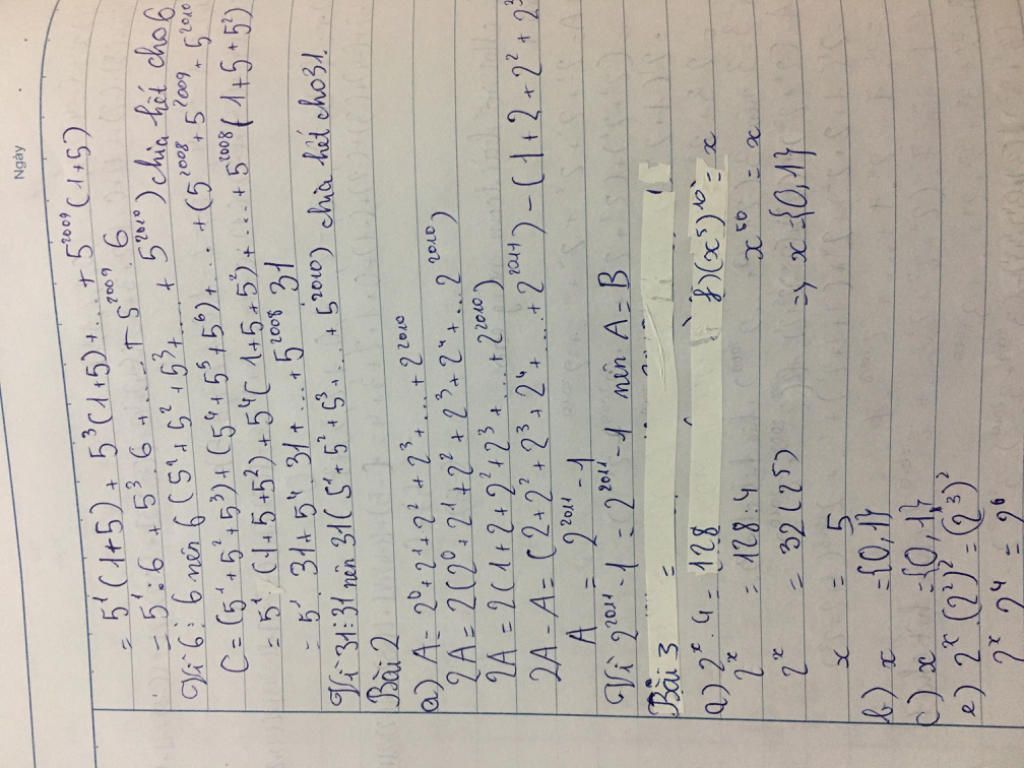 Ngày
= 5¹(1+5) + 5³(1+5) + ... + 5²⁰⁰⁹(1+5)
= 5¹.6 + 5³.6 + ... + 5²⁰⁰⁹.6
Vì 6⋮6 nên 6(5¹ + 5² + 5³ + ... + 5²⁰¹⁰) chia hết cho 6
C = (5¹ + 5² + 5³) + (5⁴ + 5⁵ + 5⁶) + ... + (5²⁰⁰⁸ + 5²⁰⁰⁹ + 5²⁰¹⁰
= 5¹(1+5+5²) + 5⁴(1+5+5²) + ... + 5²⁰⁰⁸(1+5+5²)
= 5¹ 31 + 5⁴ 31 + ... + 5²⁰⁰⁸ 31
Vì 31⋮31 nên 31(5¹ + 5² + 5³ + ... + 5²⁰¹⁰) chia hết cho 31.
Bài 2
a) A = 2⁰ + 2¹ + 2² + 2³ + ... + 2²⁰¹⁰
2A = 2(2⁰ + 2¹ + 2² + 2³ + 2⁴ + ... 2²⁰¹⁰)
2A = 2(1 + 2 + 2² + 2³ + ... + 2²⁰¹⁰)
2A - A = (2 + 2² + 2³ + 2⁴ + ... + 2²⁰¹¹) - (1 + 2 + 2² + 2³
A = 2²⁰¹¹ - 1
Vì 2²⁰¹¹ - 1 = 2²⁰¹¹ - 1 nên A = B
Bài 3 =
a) 2ˣ.4 = 128
2ˣ = 128:4
2ˣ = 32(2⁵)
x = 5
b) x = {0,1}
c) x = {0,1}
e) 2ˣ.(2²)² = (2³)²
2ˣ.2⁴ = 2⁶
f) (x⁵)¹⁰ = x
x⁵⁰ = x
=> x = {0,1}